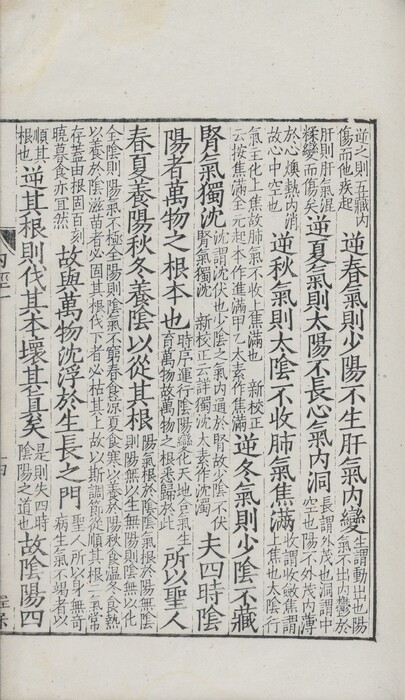 逆之則五藏內
傷而他疾起
逆春氣則少陽不生肝氣內變
生謂動出也陽
氣不出內鬱於
肝則肝氣混
糅變而傷矣
逆夏氣則太陽不長心氣內洞
長謂外茂也洞謂中
空也陽不外茂內薄
於心燠熱內消
故心中空也
逆秋氣則太陰不收肺氣焦滿
收謂收斂焦謂
上焦也太陰行
氣主化上焦故肺氣不收上焦滿也 新校正
云按焦滿全元起本作進滿甲乙太素作焦滿
逆冬氣則少陰不藏
腎氣獨沈
沈謂沈伏也少陰之氣內通於腎故少陰不伏
腎氣獨沈 新校正云詳獨沈太素作沈濁
夫四時陰
陽者萬物之根本也
時序運行陰陽變化天地合氣生
育萬物故萬物之根悉歸於此
所以聖人
春夏養陽秋冬養陰以從其根
陽氣根於陰陰氣根於陽無陰
則陽無以生無陽則陰無以化
全陰則陽氣不極全陽則陰氣不窮春食涼夏食寒以養於陽秋食溫冬食熱
以養於陰滋苗者必固其根伐下者必枯其上故以斯調節從順其根二氣常
存蓋由根固百刻
曉暮食亦宜然
故與萬物沈浮於生長之門
聖人所以身無奇
病生氣不竭者以
順其
根也
逆其根則伐其本壞其真矣
是則失四時
陰陽之道也
故陰陽四